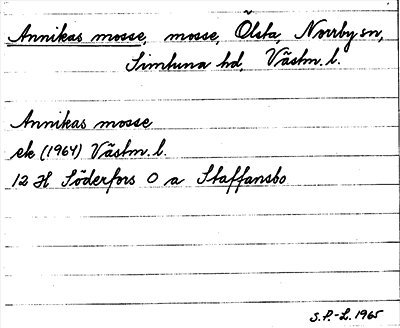 Annikas mosse, mosse, Ölsta, Norrby sn,
Simtuna hd, Västm. l.
Annikas mosse
ek (1964) Västm. l.
12 H Söderfors O a Staffansbo
S.P.-L. 1965